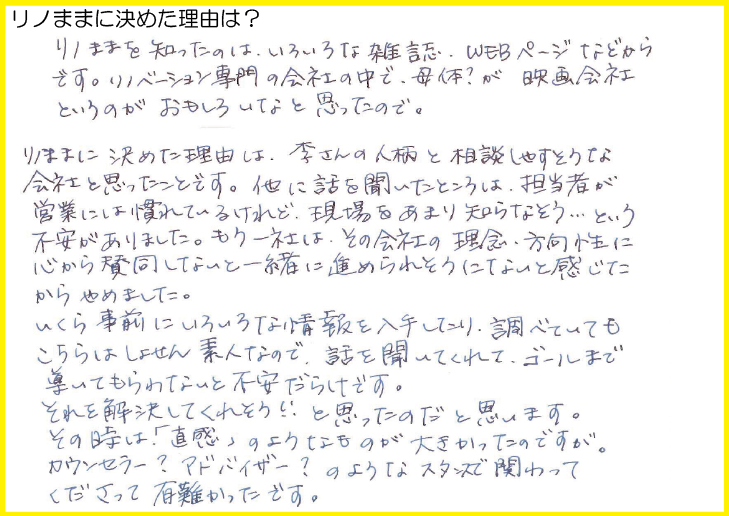 リノままに決めた理由は？
リノままを知ったのは、いろいろな雑誌、WEBページなどから
です。リノベーション専門の会社の中で、母体？が 映画会社
というのが おもしろいなと思ったので。
リノままに 決めた理由は、李さんの人柄と相談しやすそうな
会社と思ったことです。他に話を聞いたところは、担当者が
営業には慣れているけれど、現場をあまり知らなそう…という
不安がありました。もう一社は、その会社の理念・方向性に
心から賛同しないと一緒に進められそうにないと感じた
からやめました。
いくら事前にいろいろな情報を入手したり、調べていても
こちらはしょせん素人なので、話を聞いてくれて、ゴールまで
導いてもらわないと不安だらけです。
それを解決してくれそうだ と思ったのだと思います。
その時は「直感」のようなものが大きかったのですが。
カウンセラー？アドバイザー？のようなスタンスで関わって
くださって有難かったです。